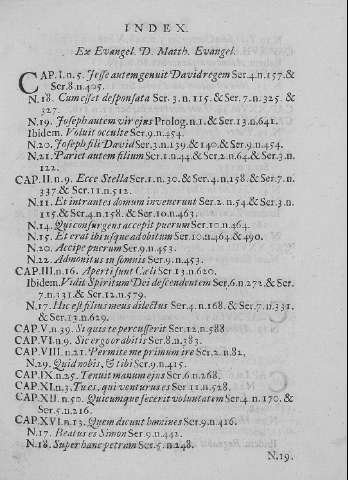 INDEX.
Ex Evangel. D. Matth. Evangel.
CAP.I.n.5. Jesse autem genuit David regem Ser.4.n.157.&
Ser.8.n.405.
N.18. Cum esset desponsata Ser.3.n.115.& Ser.7.n.325. &
327.
N.19. Joseph autem vir ejus Prolog.n.1.& Ser.13.n.641.
Ibidem. Voluit occulte Ser.9.n.454.
N.20. Joseph fili David Ser.3.n.139.& 140.& Ser.9.n.454.
N.21. Pariet autem filium Ser.1.n.44.& Ser.2.n.64.& Ser.3.n.
122.
CAP.II.n.9. Ecce Stella Ser.1.n.30.& Ser.4.n.158.& Ser.7.n.
337.& Ser.11.n.512.
N.11. Et intrantes domum invenerunt Ser.2.n.54.& Ser.3.n.
115.& Ser.4.n.158.& Ser.10.n.463.
N.14. Qui consurgens accepit puerum Ser.10.n.464.
N.15. Et erat ibi usque ad obitum Ser.10.n.464.& 490.
N.20. Accipe puerum Ser.9.n.453.
N.22. Admonitus in somnis Ser.9.n.453.
CAP.III.n.16. Aperti sunt Cæli Ser.13.n.620.
Ibidem. Vidit Spiritum Dei descendentem Ser.6.n.272.& Ser.
7.n.331.& Ser.12.n.579.
N.17. Hic est filius meus dilectus Ser.4.n.168.& Ser.7.n.331.
& Ser.13.n.629.
CAP.V.n.39. Si quis te percusserit Ser.12.n.588
CAP.VI.n.9. Sic ergo orabitis Ser.8.n.383.
CAP.VIII.n.21. Permite me primum ire Ser.2.n.82.
N.29. Quid nobis, & tibi Ser.9.n.415.
CAP.IX.n.25. Tenuit manum ejus Ser.6.n.268.
CAP.XI.n.3. Tu es, qui venturus es Ser.11.n.528.
CAP.XII.n.50. Quicumque fecerit voluntatem Ser.4.n.170.&
Ser.5.n.216.
CAP.XVI.n.13. Quem dicunt homines Ser.9.n.416.
N.17. Beatus es Simon Ser.9.n.442.
N.18. Super hanc petram Ser.5.n.248.
N.19.